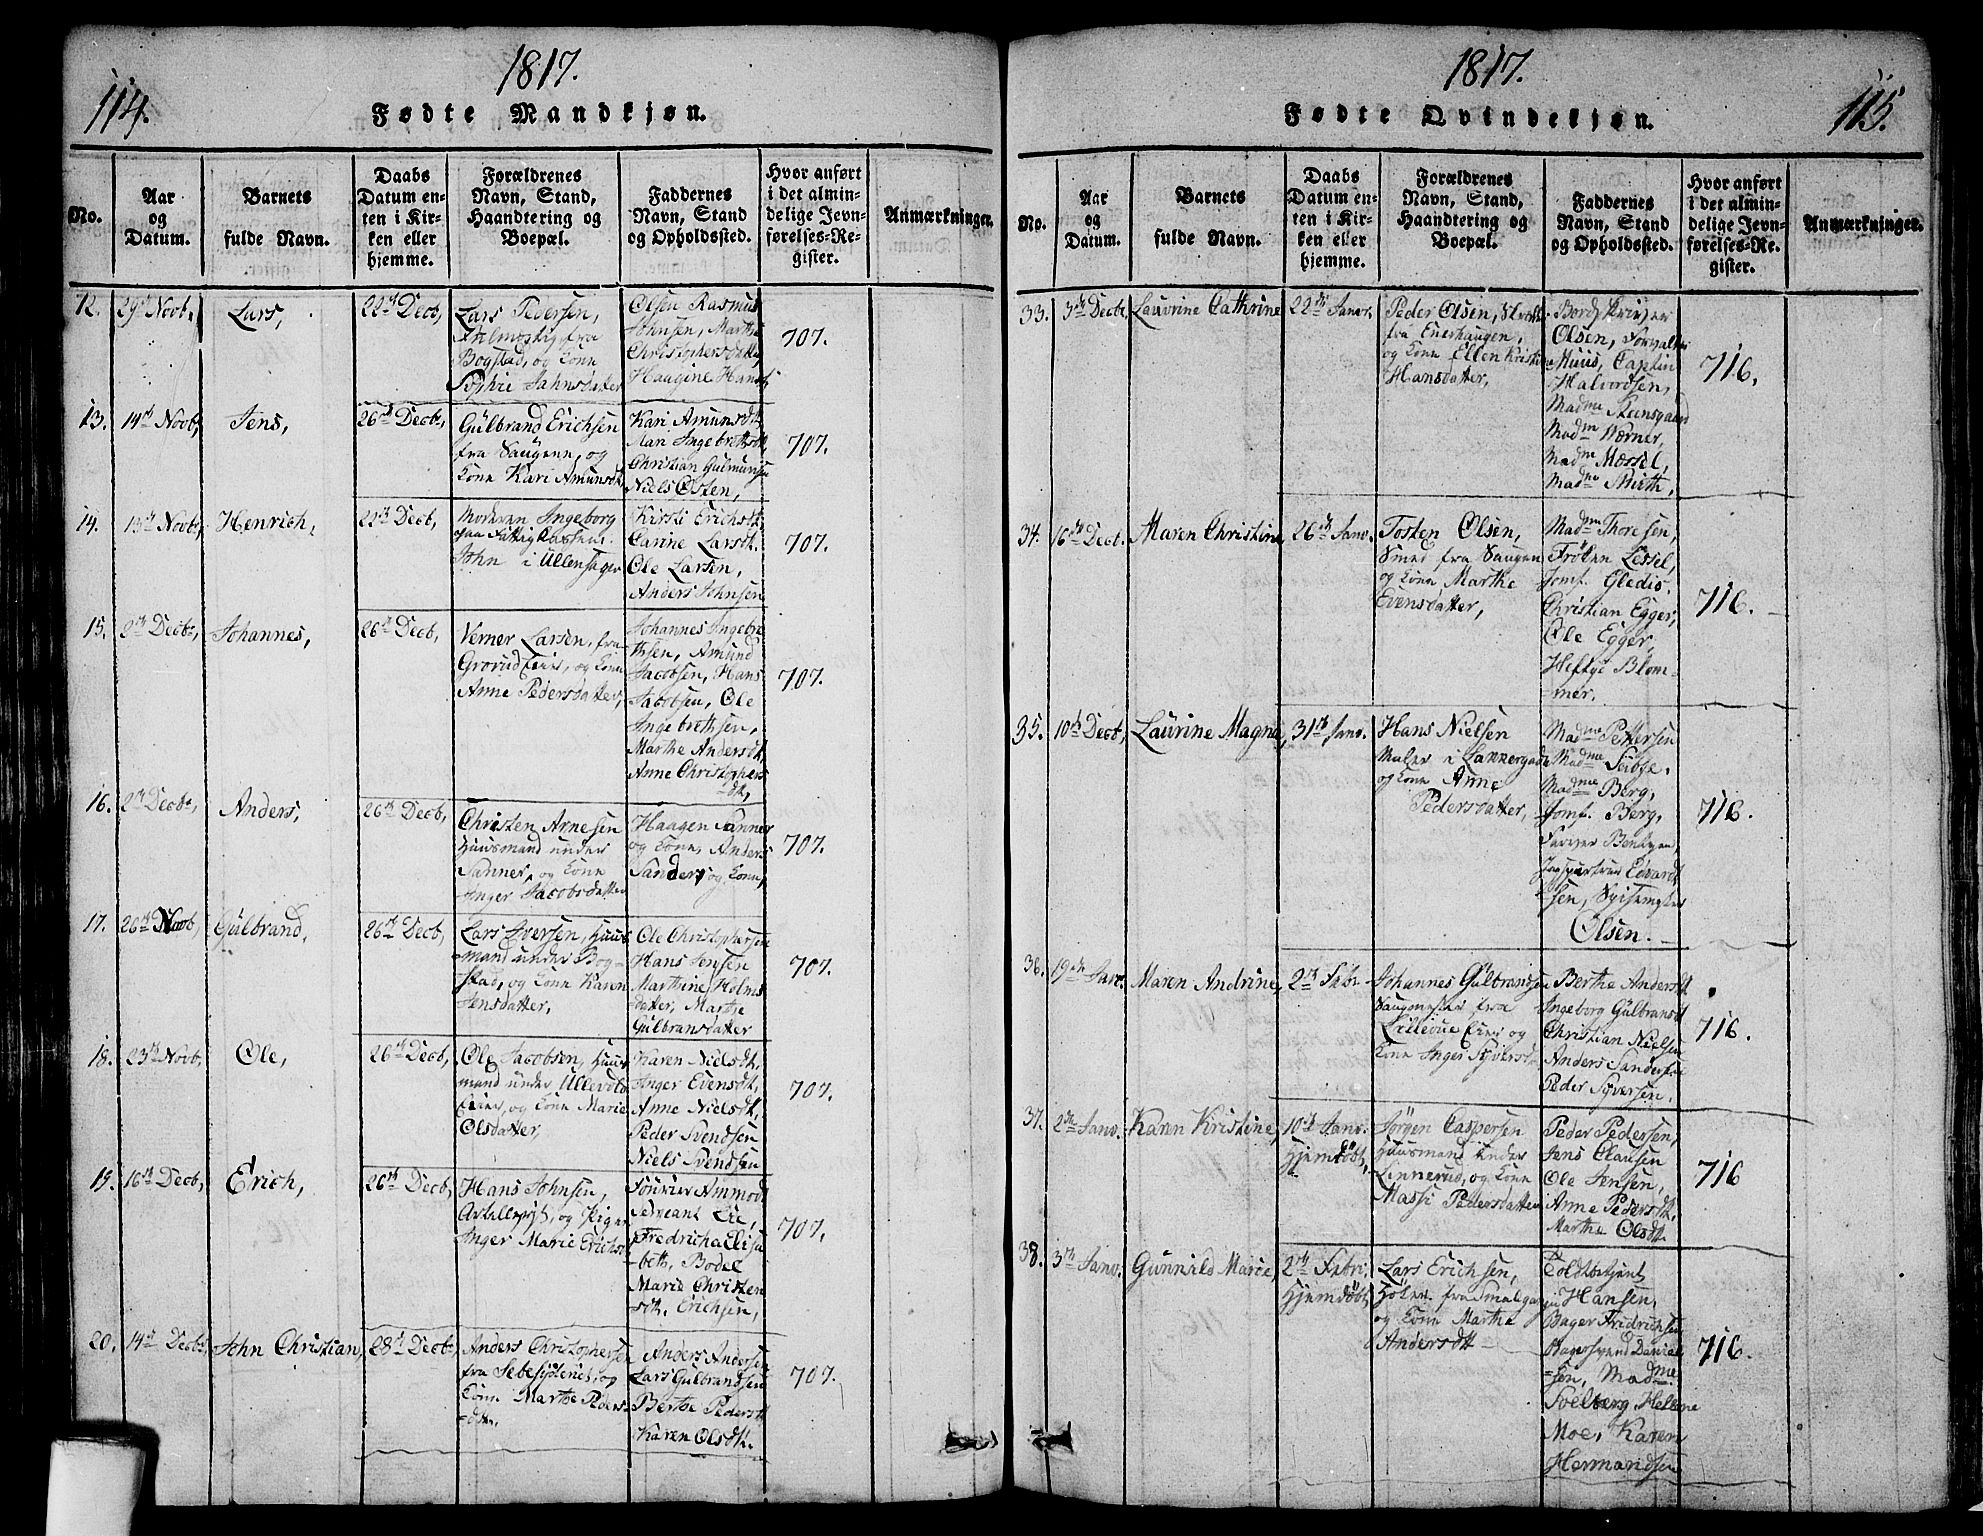 114.
1817.
Fødte Mandkjøn.
No.
Aar
og
Datum.
Barnets
fulde Navn.
Daabs
Datum en-
ten i Kir-
ken eller
hjemme.
Forældrenes
Navn, Stand,
Haandtering og
Boepæl.
Faddernes
Navn, Stand
og Opholdssted.
Hvor anført
i det almin-
delige Jevn-
førelses-Re-
gister.
Anmærkninger.
12.
29de Novb.
Lars,
22de Decb,
Lars Pedersen,
fra
Bogstad, og Kone
Sophie Jahnsdatter
Olsen Rasmus
Johnsen, Marthe
Christophersdatter
Haagine Hansd.
707.
13.
14de Novb,
Jens,
26de Decb,
Gülbrand Erichsen
fra Saugene, og
Kone Kari Amunsdt.
Kari Amunsdt.
Mari Ingebrethsdt.
Christian Gulmunsen
Niels Østen,
707.
14.
13de Novb,
Henrich,
22de Decb,
Moderen Ingeborg
John i Ullensager
Kirsti Erichsdt,
Carine Larsdt.
Ole Larsen,
Anders Johnsen
707.
15.
2de Decb,
Johannes,
26de Decb,
Verner Larsen, fra
Grorud Eier, og Kone
Anne Pedersdatter,
Johannes Ingebre
thsen, Amund
Jacobsen, Hans
Jacobsen, Ole
Ingebrethsen,
Marthe Andersdt
Anne Christophers
dt,
707.
16.
2de Decb,
Anders,
26de Decb,
Christen Arnesen
Huusmand under
Sanner, og Kone
Inger Jacobsdatter
Haagen Sanner
og Kone, Anders
Sander, og Kone,
707.
17.
26de Novb,
Gülbrand,
26de Decb,
Lars Iversen, Huus
mand under Bog-
stad, og Kone Karen
Jensdatter,
Ole Christophersen
Hans Jensen
Marthine Holms
datter, Marthe
Gülbransdatter
707.
18.
23de Novb,
Ole,
26de Decb,
Ole Jacobsen, Huus
mand under Ullevold
Eier, og Kone Marie
Olsdatter,
Karen Nielsdt,
Inger Evensdt,
Anne Nielsdt,
Peder Svendsen
Niels Svendsen
707.
19.
16de Decb,
Erich,
26de Decb,
Hans Johnsen,
og Pigen
Inger Marie Erichsd
Fourier Ammodt
Sergeant Lie,
Fredricha Elisa
beth, Bodel
Marie Christen
sdt, Erichsen,
707.
20.
14de Decb,
John Christian,
28de Decb,
Anders Christophersen
fra og
Kone Marthe Peders
dter.
Anders Andersen
Lars Gülbrandsen
Berthe Pedersdt
Karen Olsdt.
707.
1817.
115.
Fødte Qvindekjøn.
No.
Aar
og
Datum.
Barnets
fulde Navn.
Daabs
Datum en-
ten i Kir-
ken eller
hjemme.
Forældrenes
Navn, Stand,
Haandtering og
Boepæl.
Faddernes
Navn, Stand
og Opholdssted.
Hvor anført
i det almin-
delige Jevn-
førelses-Re-
gister.
Anmærkninger.
33.
3de Decbr
Laurine Cathrine
22de Janv.
Peder Olsen,
fra Enerhaugen,
og Kone Ellen Kristine
Hansdatter,
Bordskriver
Olsen,
Muus, Captin
Halvordsen,
Madme Steensgaard
Madm Wærner,
Madme Mæssel,
Madme
716.
34.
16de Decb.
Maren Christine,
26de Janv.
Tosten Olsen,
Smed fra Saugen
og Kone Marthe
Evensdatter,
Madme Thoresen,
Frøken Lessel,
Jomf. Gledis.
Christian Egger,
Ole Egger,
Heftye Blom-
mer.
716.
35.
10de Decb,
Laurine Magna,
31de Janv.
Hans Nielsen
Maler i
og Kone Anne
Pedersdatter,
Madme Pettersen
Madme
Madme Berg,
Jomf. Berg,
Edvardt
sen,
Olsen.
716.
36.
19de Janv.
Maren Andrine,
2de Febr.
Johannes Gülbrandsen
Saugmester fra
Lillevue Eier og
Kone Inger Syversd.
Berthe Andersdt
Ingeborg Gülbransdt
Christian Nielsen
Anders Sandersen
Peder Syversen.
716.
37.
2de Janv.
Karen Kristine,
10de Janv.
Hjemdöbt,
Jørgen Caspersen
Huusmand under
Linnerud, og Kone
Massi Pedersdatter
Peder Pedersen,
Jens Clausen
Ole Jensen,
Anne Pedersdt.
Marthe Olsdt.
716
38.
3de Janv.
Gunnild Marie,
2de Febr.
Hjemdöbt
Lars Erichsen,
Høker fra Smalgangen
og Kone Marthe
Andersdt
Toldbetjent
Hansen,
Bager Fridrichsen
Bagersvend Daniel
sen, Madme
Solberg, Hellene
Moe, Karen
Hermandsen
716.